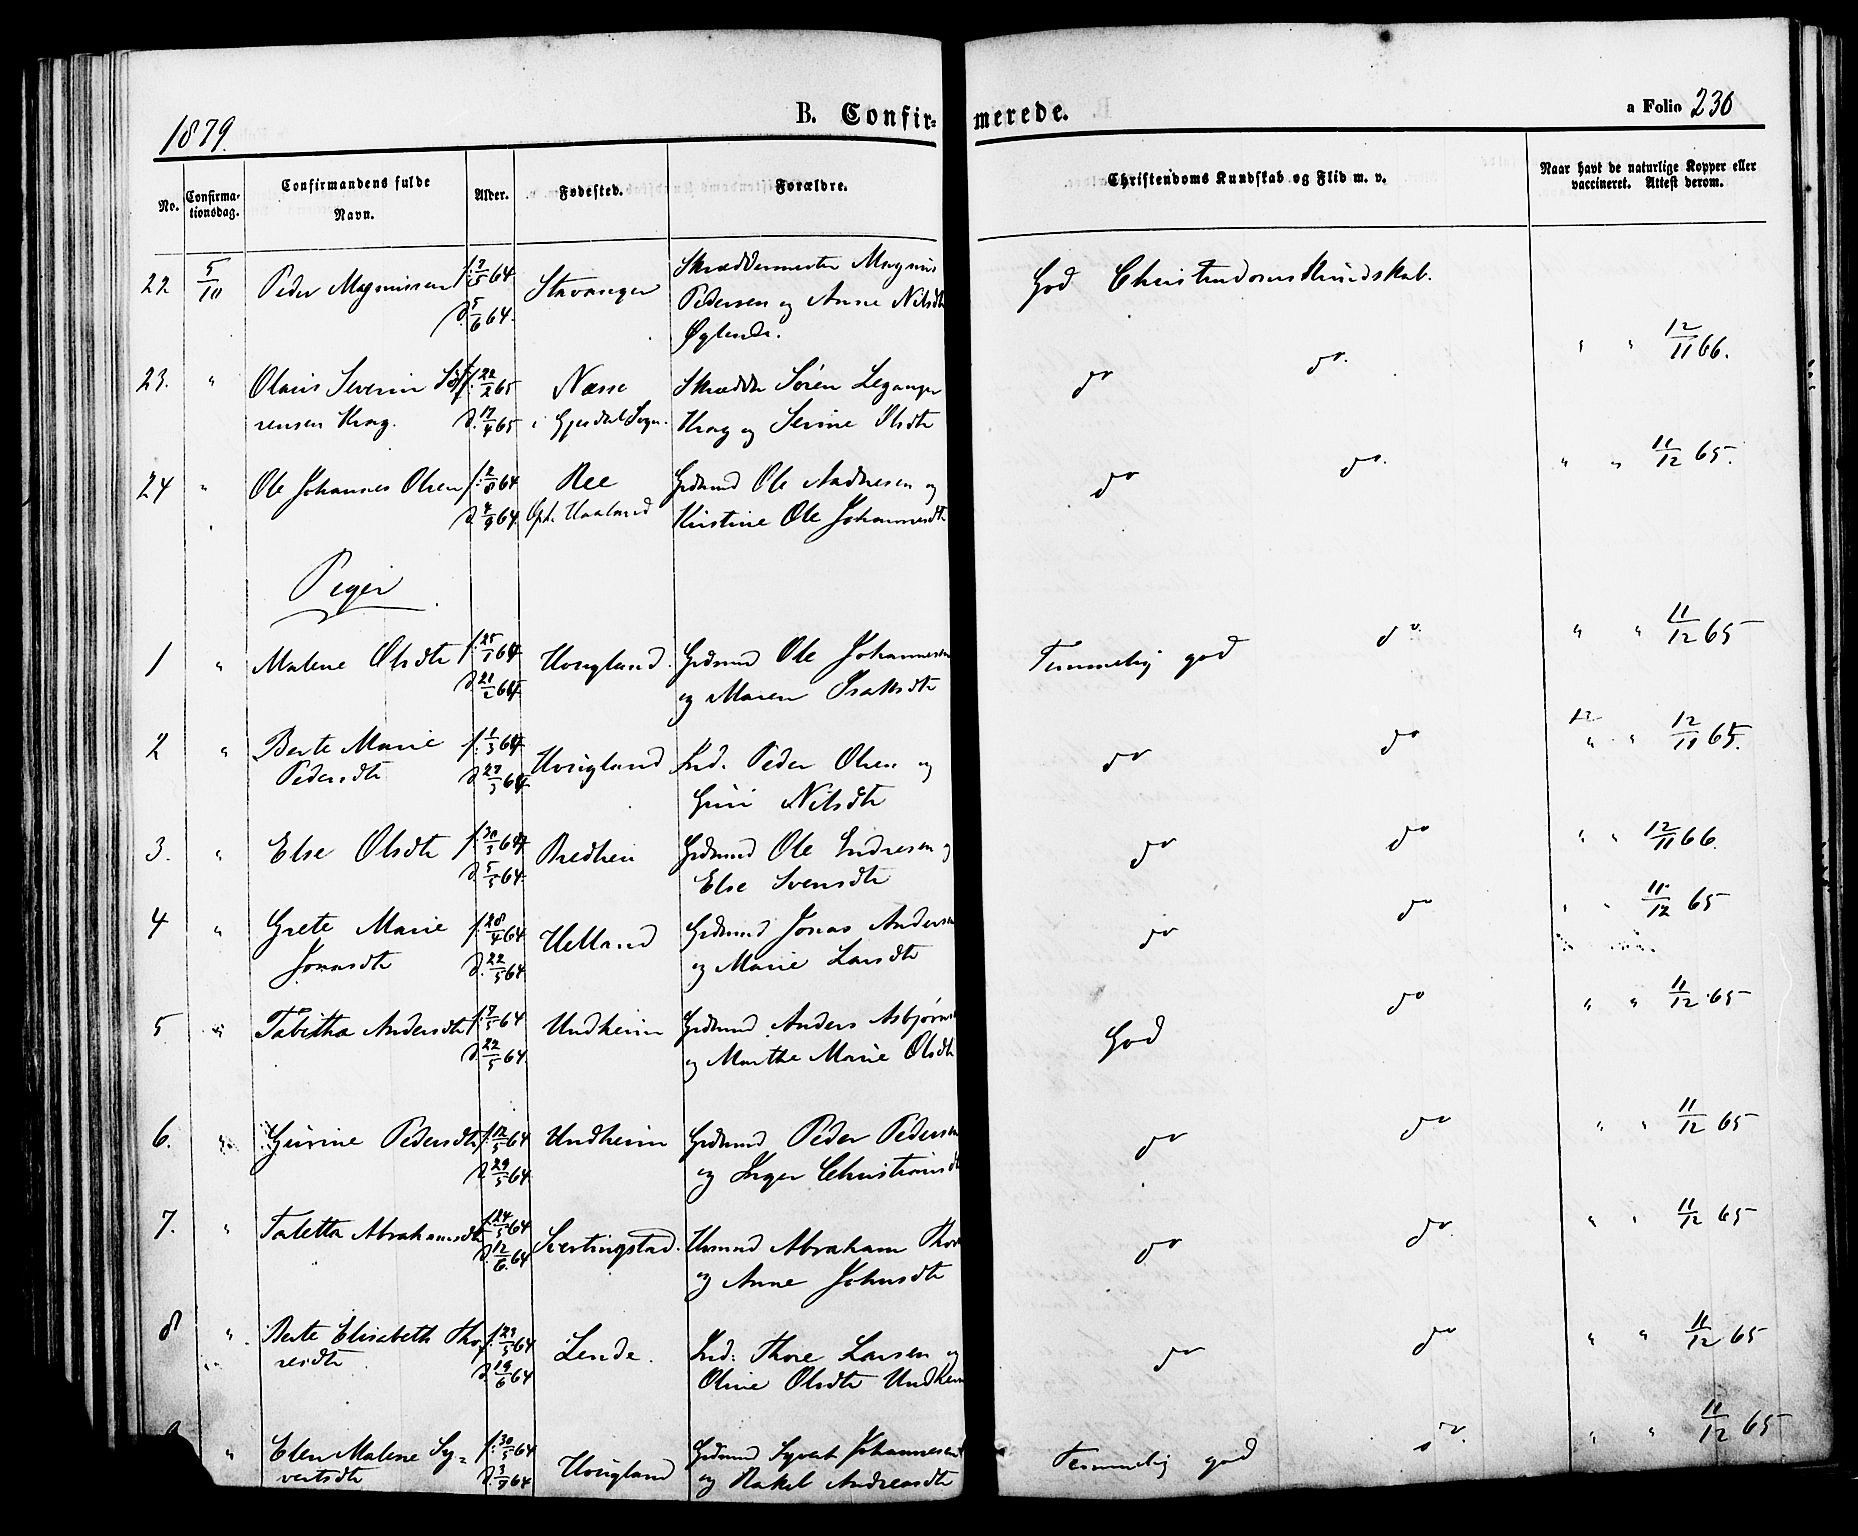 1879.
B. Confirmerede.
a Folio 230
No.
Confirmationsdag.
Confirmandens fulde Navn.
Alder.
Fødested.
Forældre.
Christendoms Kundskab og Flid m. v.
Naar havt de naturlige Kopper eller vaccineret. Attest derom.
22 5/10 Peder Magnussen f: 7/5 64 Stavanger Skræddermester Magnus God Christendomskundskab.
d. 5/6 64. Pedersen og Anne Nilsdtr
Øglende.
23. " Olaus Severin Sö- f. 22/2 65 Næsse Skrædder Sören Leganger do do. " " 12/11 66.
rensen Krag. d. 17/4 65 i Gjesdal Sogn. Krag og Serine Olsdtr
24 " Ole Johannes Olsen f. 2/8 64 Ree Grdmnd Ole Andresen og do do. " " 11/12 65.
d. 4/9 64. Opd. Haaland Kirstine Ole Johannesdtr
Piger
1 " Malene Olsdtr f. 25/1 64 Hougland. Grdmnd Ole Johannesen Temmelig god do " " 11/12 65
d. 21/2 64 og Maren Isaksdtr
2 " Berte Marie f. 1/3 64 Hougland Ind. Peder Olsen og do do 12 " " 12/11 65.
Pedersdtr d. 27/3 64 Guri Nilsdtr
3. " Else Olsdtr f. 30/3 64 Bredhei Grdmnd Ole Endresen og do do " " 12/11 66.
d. 5/5 64. Else Svensdtr
4 " Grete Marie f. 28/4 64 Helland Grdmnd Jonas Andersen do do " " 11/12 65
Jonasdtr d. 22/5 64 og Marie Larsdtr
5. " Tabitha Andersdtr f. 7/5 64 Undheim Grdmnd Anders Asbjørns God do " " 11/12 65
d. 22/5 64 og Marthe Marie Olsdtr
6. " Gurine Pedersdtr f. 12/5 64 Undheim Grdmnd Peder Pedersen do do " " 11/12 65
d. 29/5 64 og Inger Christiansdtr
7. " Taletta Abrahamsdtr f. 24/5 64 Svertingstad. Husmnd Abraham Thor do do. " " 11/12 65
d. 12/6 64 og Anne Johnsdtr
8 " Berte Elisabeth Tho- f. 29/5 64 Lende. Ind: Thore Larsen og do do " " 11/12 65
resdtr d. 19/6 64 Oline Olsdtr Undheim
" Elen Malene Sy- f: 30/5 64 Hougland Grdmnd Syvert Johannesen Temmelig god do. " " 11/12 65
vertsdtr d. 3/7 64 og Rakel Andreasdtr